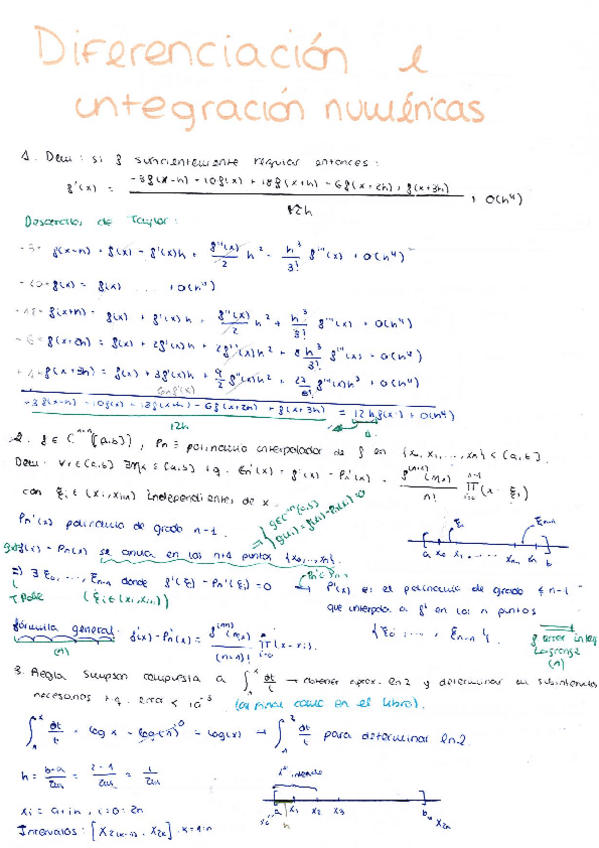 Diferenciación e
integración numéricas
1. Dem: si f suficientemente regular entonces:
f'(x) = (-3f(x-h) - 10f(x) + 18f(x+h) - 6f(x+2h) + f(x+3h)) / 12h + O(h⁴)
Desarrollos de Taylor:
-3· f(x-h) = f(x) - f'(x)h + f''(x)/2 h² - h³/3! f'''(x) + O(h⁴)
-10·f(x) = f(x) ..... + O(h⁴)
f(x+h) = f(x) + f'(x)h + f''(x)/2 h² + h³/3! f'''(x) + O(h⁴)
-6·f(x+2h) = f(x) + 2f'(x)h + 2f''(x)h² + 8h³/3! f'''(x) + O(h⁴)
f(x+3h) = f(x) + 3f'(x)h + 9/2 f''(x)h² + 27/3! f'''(x)h³ + O(h⁴)
-3f(x-h) - 10f(x) + 18f(x+h) - 6f(x+2h) + f(x+3h) = 12h f'(x) + O(h⁴)
12h
2. f ∈ C ([a,b]), Pn ≡ polinomio interpolador de f en {x₀, x₁, ..., xn} ⊂ [a,b].
Dem: ∀x∈[a,b] ∃ηx ∈ [a,b] t.q. En'(x) = f'(x) - Pn'(x) = f⁽ⁿ⁺¹⁾(ηx)/n! ∏ (x - ξi)
con ξi ∈ (xi, xi+1) independientes de x.
Pn'(x) polinomio de grado n-1.
f(x) - Pn(x) se anula en los n+1 puntos {x₀,...,xn}
⇒ ∃ ξ₀, ..., ξn-1 donde f'(ξi) - Pn'(ξi) = 0 → P'(x) es el polinomio de grado ≤ n-1
que interpola a f' en los n puntos
Rolle (ξi ∈ (xi, xi+1))
{ξ₀, ..., ξn-1}.
fórmula general: f(x) - Pn(x) = f⁽ⁿ⁺¹⁾(ηx)/(n+1)! ∏ (x - xi)
error interp
Lagrange
3. Regla Simpson compuesta a ∫₁ˣ dt/t → obtener aprox. ln 2 y determinar nº subintervalos
necesarios t.q. error < 10⁻³ (al final como en el libro).
∫₁ˣ dt/t = log x - log(1) = log(x) → ∫₁² dt/t para determinar ln 2
h = (b-a)/2n = (2-1)/2n = 1/2n
1er intervalo
xi = a+ih, i=0:2n
a x₁ x₂ x₃ b x2n
h
Intervalos: [x2(k-1), x2k] k=1:n